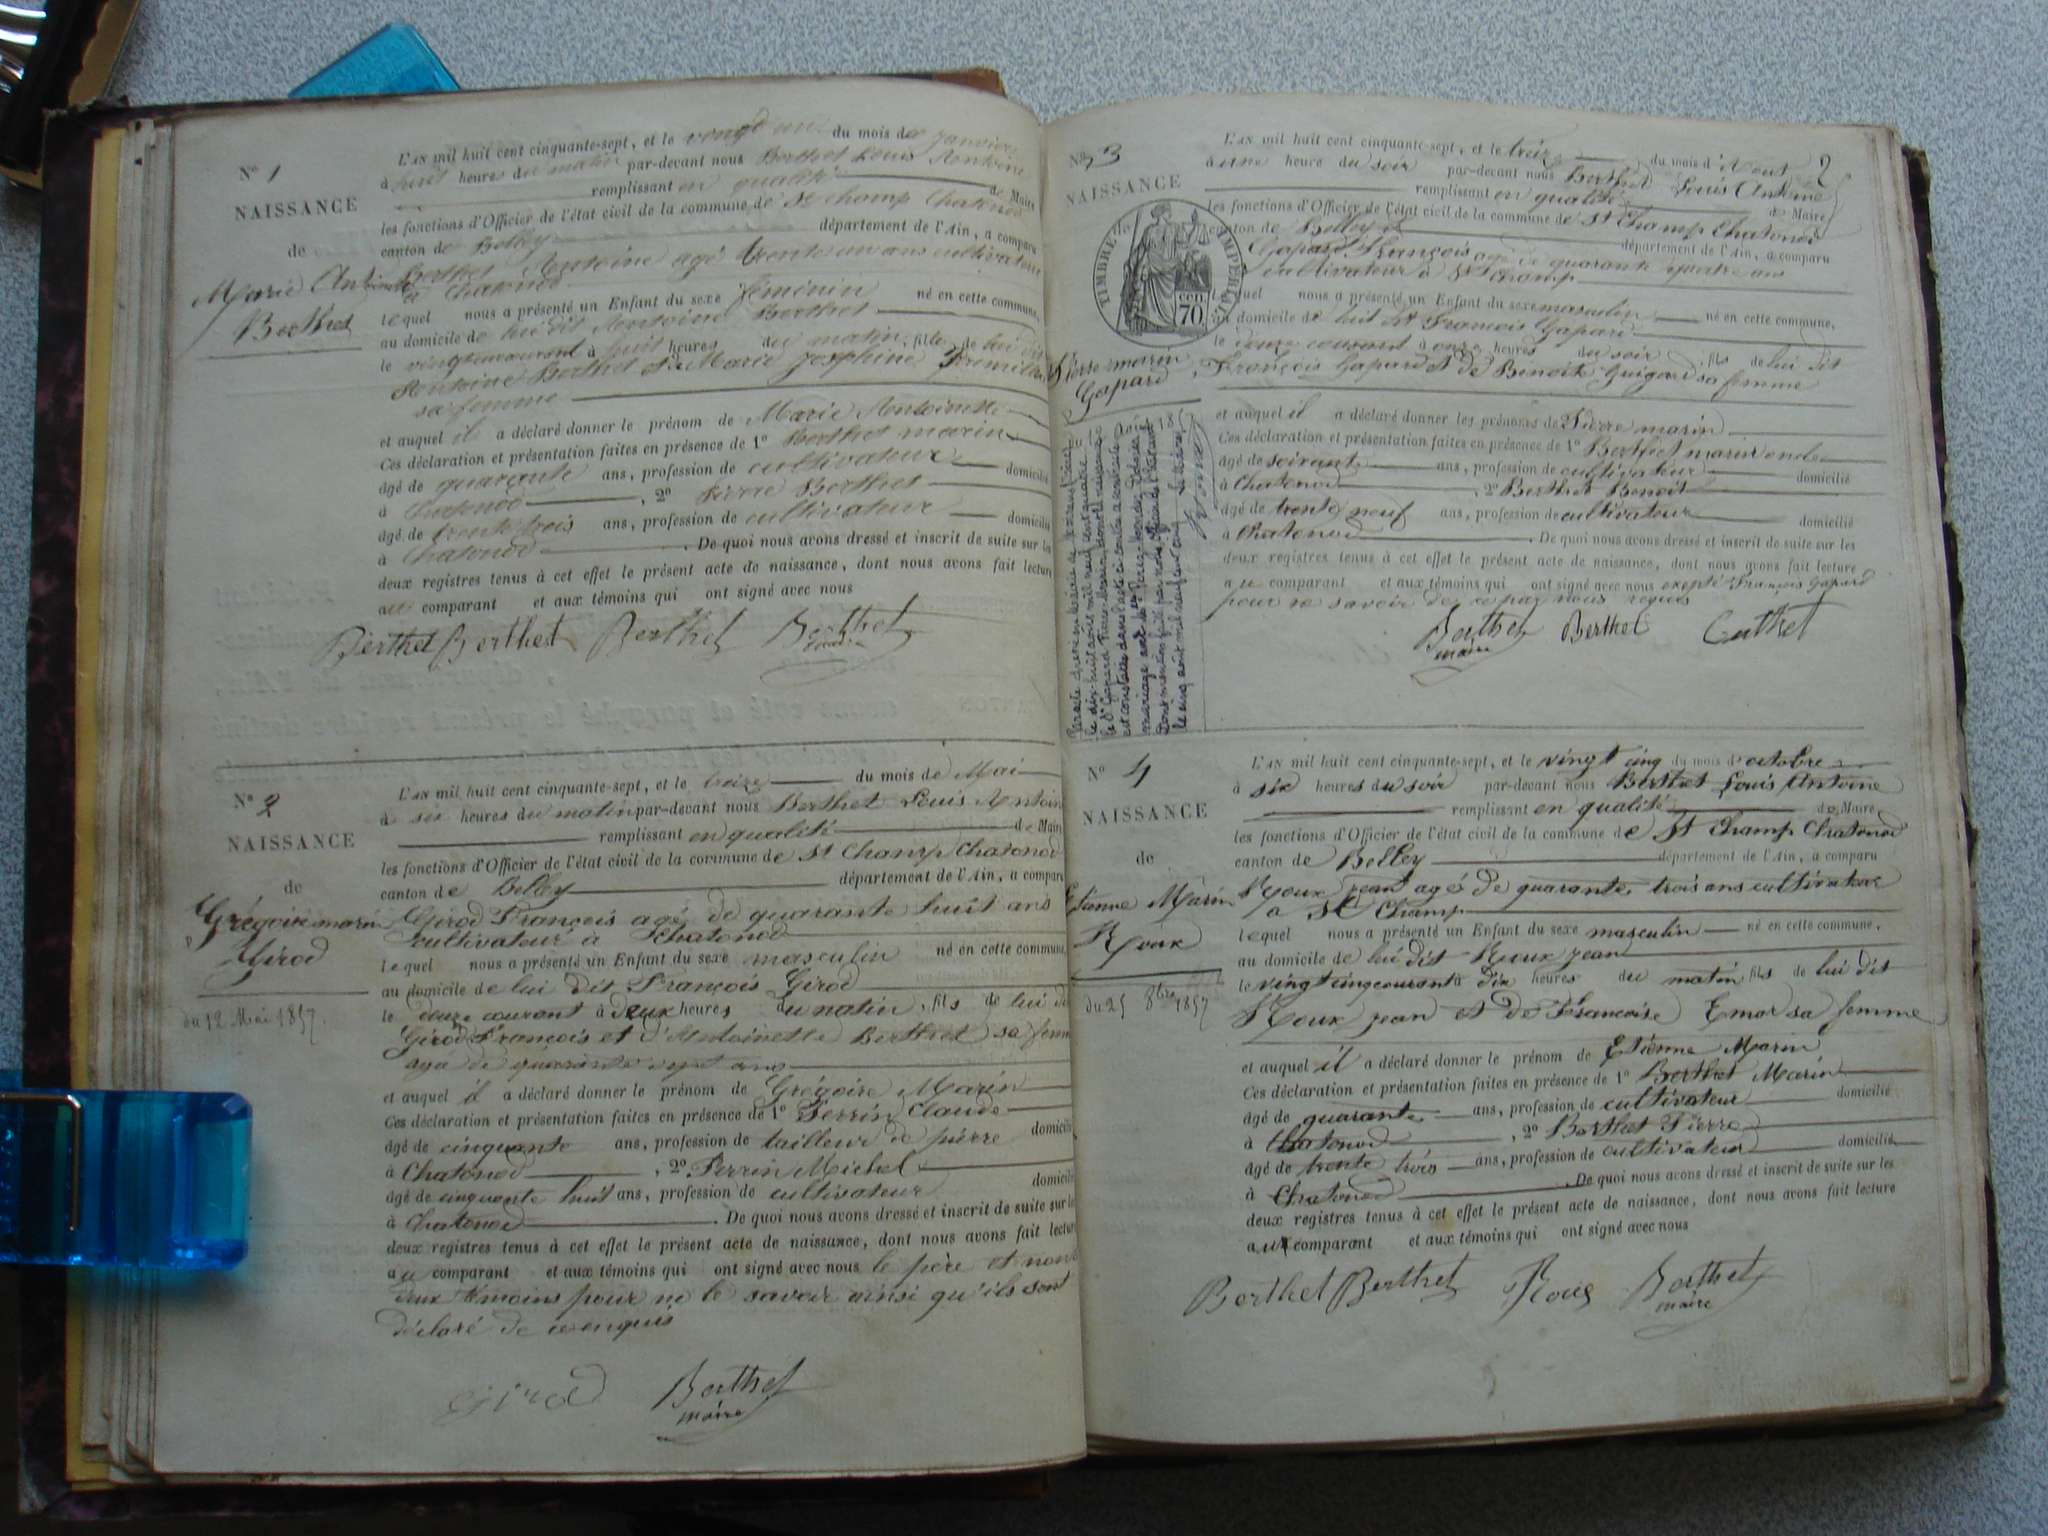 N° 1
NAISSANCE
de
Marie Antoinette
Berthet
L'AN mil huit cent cinquante-sept, et le vingt un du mois de Janvier
à huit heures du matin par-devant nous Berthet Louis Antoine
remplissant en qualité de Maire
les fonctions d'Officier de l'état civil de la commune de St Champ Chatonod
canton de Belley département de l'Ain, a comparu
Berthet Antoine agé trente un ans cultivateur
à Chatonod
lequel nous a présenté un Enfant du sexe féminin né en cette commune,
au domicile de lui dit Antoine Berthet
le courant à huit heures du matin, fille de lui dit
Antoine Berthet et de Marie Josephine
sa femme
et auquel il a déclaré donner le prénom de Marie Antoinette
Ces déclaration et présentation faites en présence de 1° Berthet marin
âgé de quarante ans, profession de cultivateur domicilié
à Chatonod, 2° Pierre Berthet
âgé de trente trois ans, profession de cultivateur domicilié
à Chatonod. De quoi nous avons dressé et inscrit de suite sur les
deux registres tenus à cet effet le présent acte de naissance, dont nous avons fait lecture
au comparant et aux témoins qui ont signé avec nous
Berthet Berthet Berthet Berthet
maire
N° 2
NAISSANCE
de
Grégoire marin
Girod
du 12 Mai 1857.
L'AN mil huit cent cinquante-sept, et le treize du mois de Mai
à six heures du matin par-devant nous Berthet Louis Antoine
remplissant en qualité de Maire
les fonctions d'Officier de l'état civil de la commune de St Champ Chatonod
canton de Belley département de l'Ain, a comparu
Girod François agé de quarante huit ans
cultivateur à Chatonod
lequel nous a présenté un Enfant du sexe masculin né en cette commune,
au domicile de lui dit François Girod
le douze courant à deux heures du matin, fils de lui dit
Girod François et d'Antoinette Berthet sa femme
agée de quarante sept ans
et auquel il a déclaré donner le prénom de Grégoire Marin
Ces déclaration et présentation faites en présence de 1° Perrin Claude
âgé de cinquante ans, profession de tailleur de pierre domicilié
à Chatonod, 2° Perrin Michel
âgé de cinquante huit ans, profession de cultivateur domicilié
à Chatonod. De quoi nous avons dressé et inscrit de suite sur les
deux registres tenus à cet effet le présent acte de naissance, dont nous avons fait lecture
au comparant et aux témoins qui ont signé avec nous le père et non
deux témoins pour ne le savoir ainsi qu'ils sont
déclaré de ce enquis
Girod Berthet
maire
2
N° 3
NAISSANCE
de
TIMBRE IMPERIAL
cen.
70
Pierre marin
Gapard
L'AN mil huit cent cinquante-sept, et le treize du mois d'Aout
à une heure du soir par-devant nous Berthet Louis Antoine
remplissant en qualité de Maire
les fonctions d'Officier de l'état civil de la commune de St Champ Chatonod
canton de Belley département de l'Ain, a comparu
Gapard François agé de quarante quatre ans
cultivateur à St Champ
lequel nous a présenté un Enfant du sexe masculin né en cette commune,
au domicile de luit dit François Gapard
le douze courant à onze heures du soir, fils de lui dit
François Gapard et de Benoite Guigard sa femme
et auquel il a déclaré donner les prénoms de Pierre marin
Ces déclaration et présentation faites en présence de 1° Berthet marin oncle
âgé de soixante ans, profession de cultivateur domicilié
à Chatonod, 2° Berthet Benoit
âgé de trente neuf ans, profession de cultivateur domicilié
à Chatonod. De quoi nous avons dressé et inscrit de suite sur les
deux registres tenus à cet effet le présent acte de naissance, dont nous avons fait lecture
au comparant et aux témoins qui ont signé avec nous exepté François Gapard
pour ne savoir de ce par nous requis
Berthet Berthet Berthet
maire
N° 4
NAISSANCE
de
Etienne Marin
Roux
du 25 8bre 1857
L'AN mil huit cent cinquante-sept, et le vingt cinq du mois d'octobre
à six heures du soir par-devant nous Berthet Louis Antoine
remplissant en qualité de Maire
les fonctions d'Officier de l'état civil de la commune de St Champ Chatonod
canton de Belley département de l'Ain, a comparu
Roux jean agé de quarante trois ans cultivateur
à St Champ
lequel nous a présenté un Enfant du sexe masculin né en cette commune,
au domicile de lui dit Roux jean
le vingt cinq courant à dix heures du matin fils de lui dit
Roux jean et de Francoise sa femme
et auquel il a déclaré donner le prénom de Etienne Marin
Ces déclaration et présentation faites en présence de 1° Berthet Marin
âgé de quarante ans, profession de cultivateur domicilié
à Chatonod, 2° Berthet Pierre
âgé de trente trois ans, profession de cultivateur domicilié
à Chatonod. De quoi nous avons dressé et inscrit de suite sur les
deux registres tenus à cet effet le présent acte de naissance, dont nous avons fait lecture
aux comparant et aux témoins qui ont signé avec nous
Berthet Berthet Roux Berthet
maire